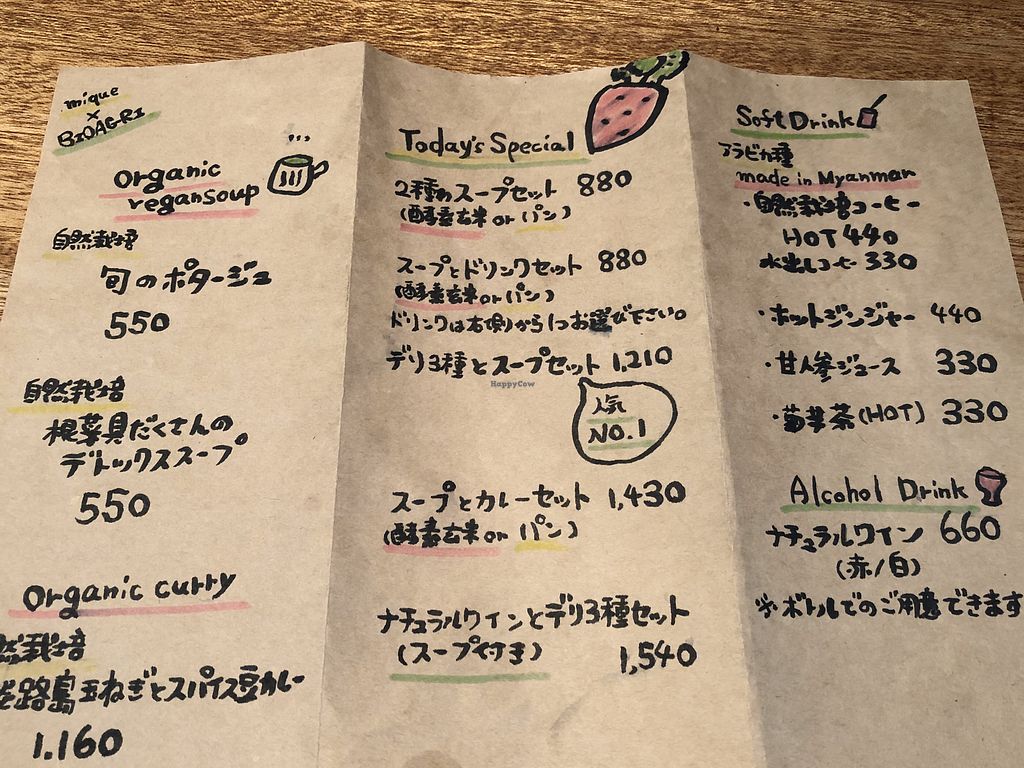 mique
×
BIOAGRI
Organic
vegansoup
自然栽培
旬のポタージュ
550
自然栽培
根菜具だくさんの
デトックススープ
550
Organic curry
然栽培
路島玉ねぎとスパイス豆カレー
1.160
Today's Special
2種のスープセット 880
(酵素玄米 or パン)
スープとドリンクセット 880
(酵素玄米 or パン)
ドリンクは右側から1つお選び下さい。
デリ3種とスープセット 1,210
HappyCow
人気
NO.1
スープとカレーセット 1,430
(酵素玄米 or パン)
ナチュラルワインとデリ3種セット
(スープ付き) 1,540
Soft Drink
アラビカ種
made in Myanmar
・自然栽培コーヒー
HOT 440
水出しコーヒー 330
・ホットジンジャー 440
・甘人参ジュース 330
・菊芋茶(HOT) 330
Alcohol Drink
ナチュラルワイン 660
(赤/白)
※ボトルでのご用意できます